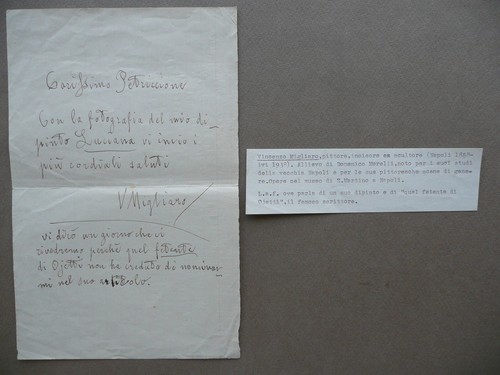 Carissimo Petriccione
Con la fotografia del mio di-
pinto Luciana vi invio i
più cordiali saluti
VMigliaro
vi dirò un giorno che ci
rivedremo perchè quel fetente
di Ojetti non ha creduto di nominar-
mi nel suo articolo.
Vincenzo Migliaro, pittore, incisore ee scultore (Napoli 1858-
ivi 1938). Allievo di Domenico Morelli, noto per i suoi studi
della vecchia Napoli e per le sue pittoresche scene di gene-
re. Opere nel museo di S. Martino a Napoli.
L.a.f. ove parla di un suo dipinto e di "quel fetente di
Ojetti", il famoso scrittore.